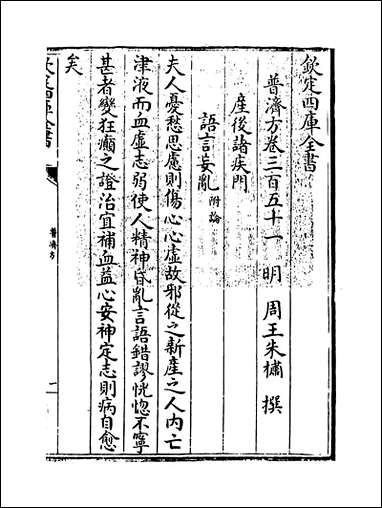 欽定四庫全書
普濟方卷三百五十一 明 周王朱橚 撰
産後諸疾門
語言妄亂附論
夫人憂愁思慮則傷心心虛故邪從之新産之人内亡
津液而血虛志弱使人精神昏亂言語錯謬恍惚不寧
甚者變狂癲之證治宜補血益心安神定志則病自愈
矣
普濟方